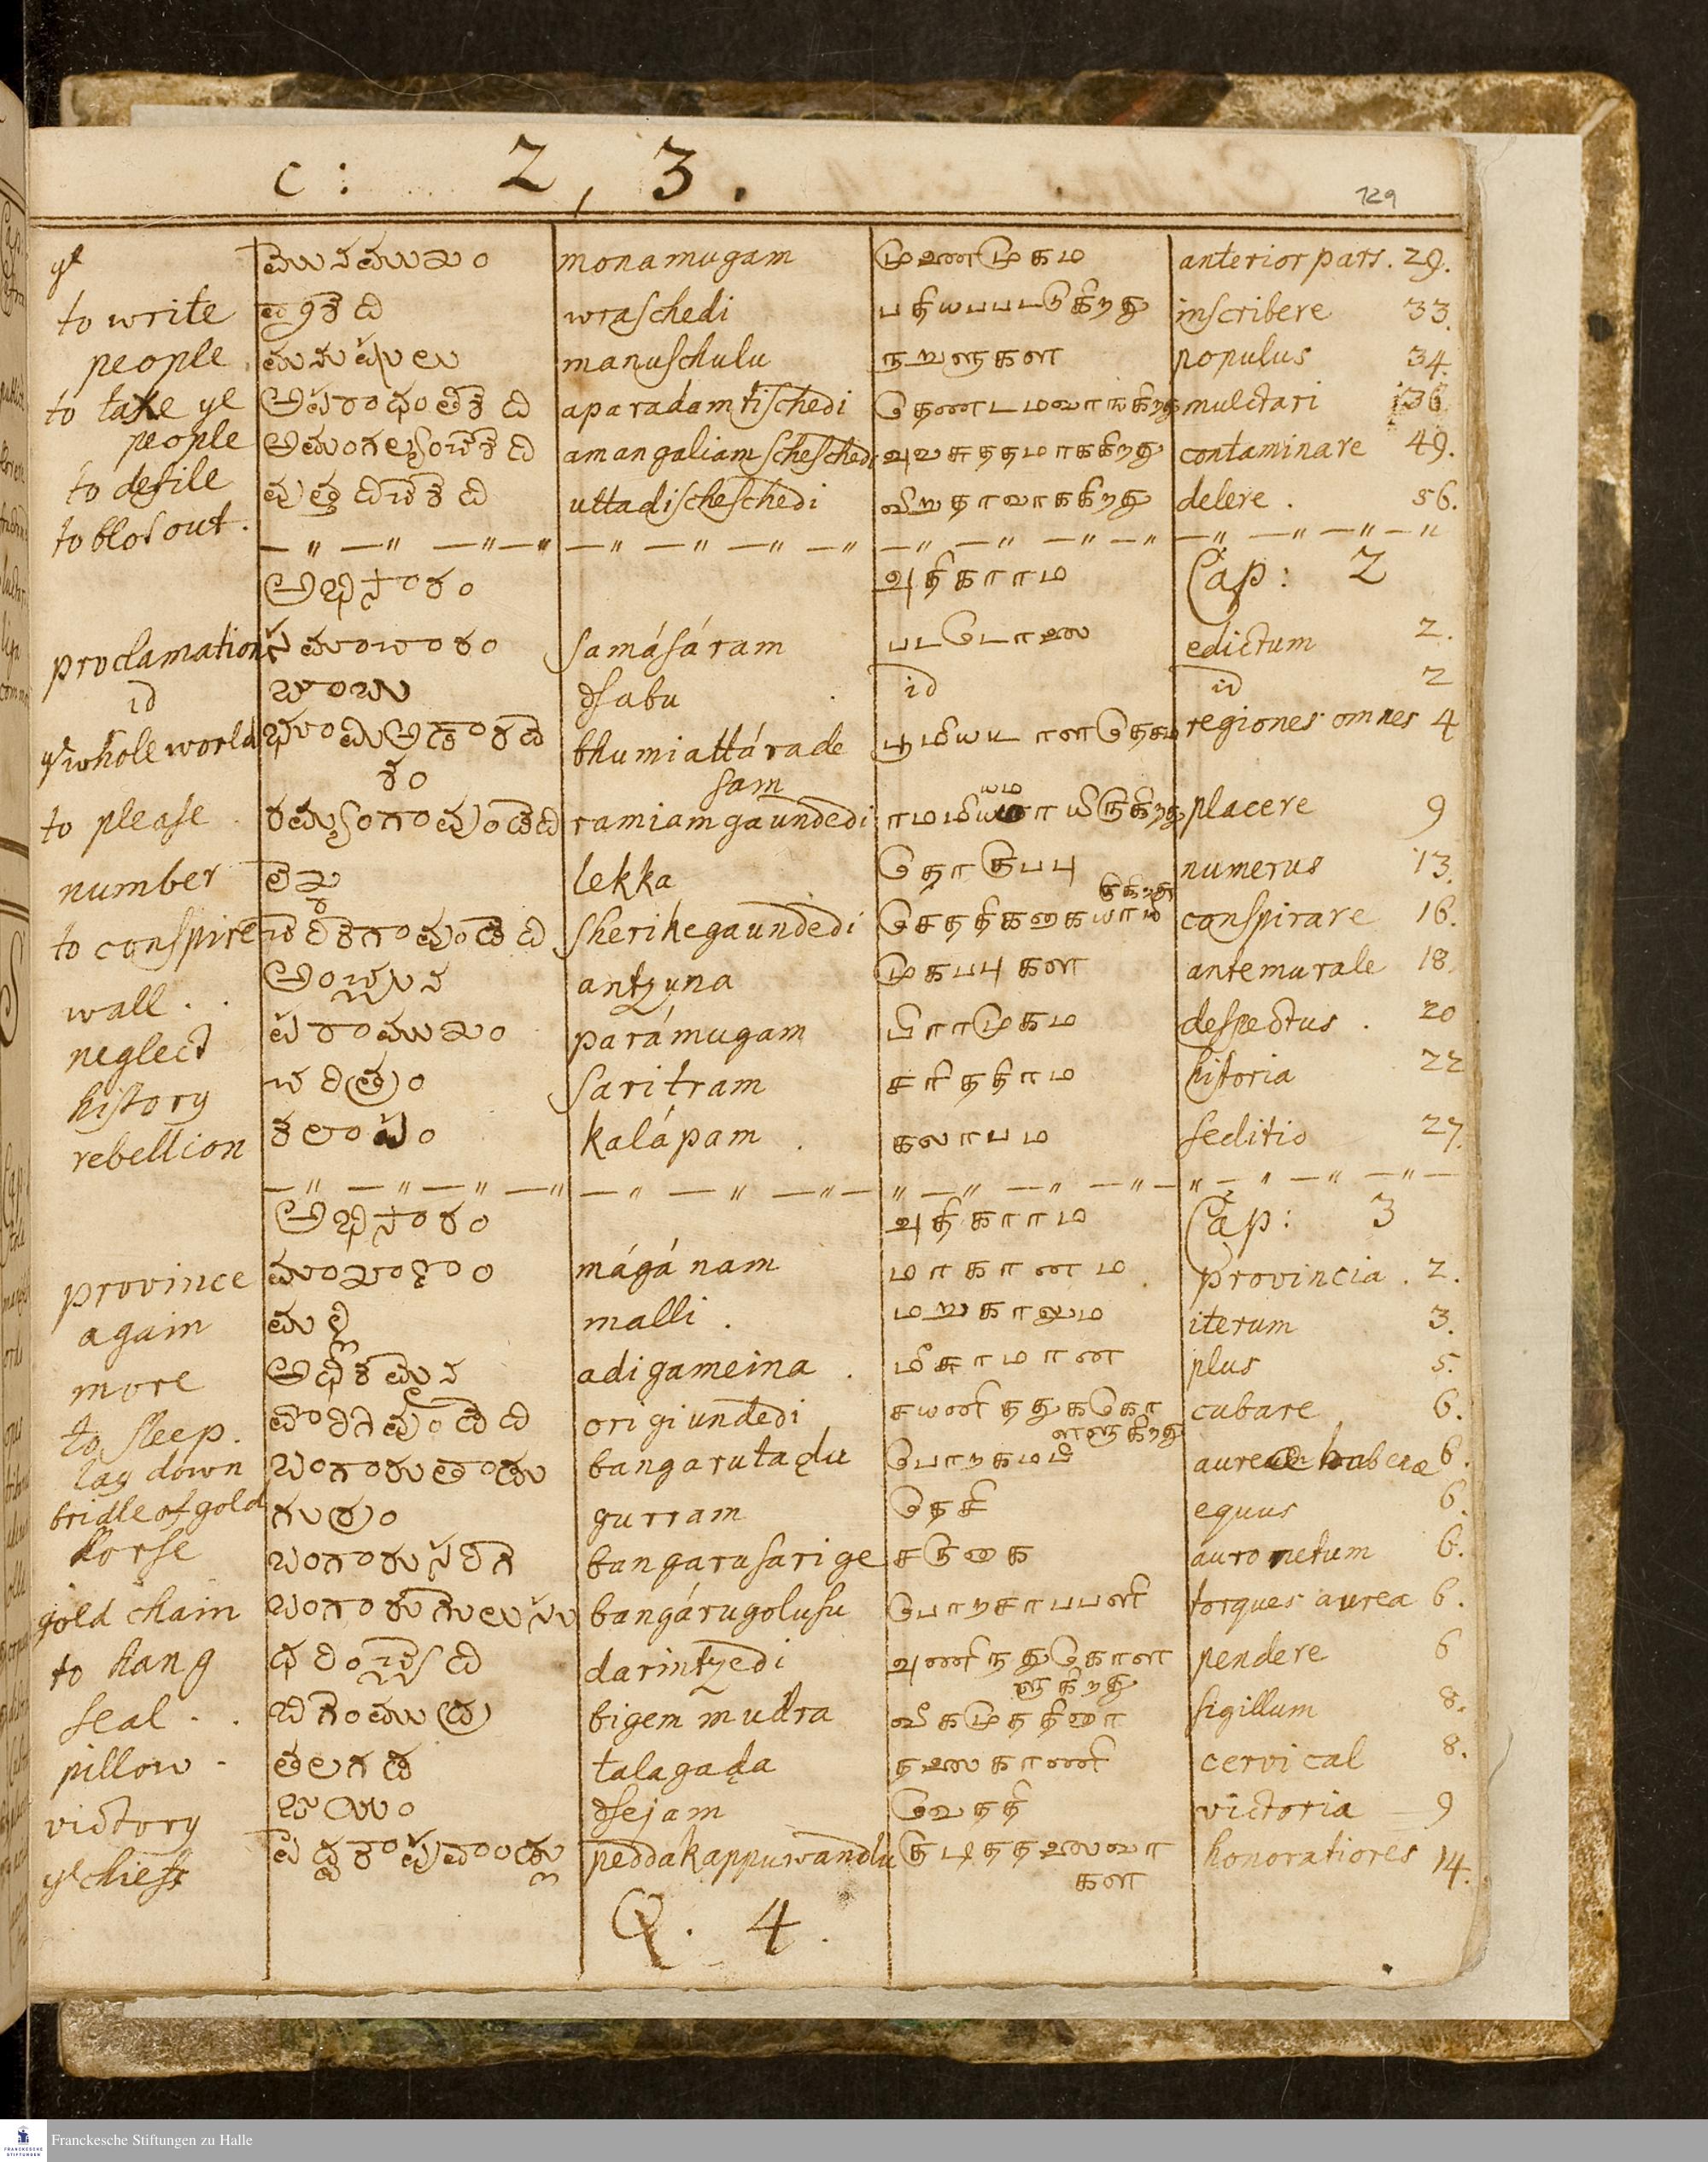 c : 2 , 3 .
129
yͤ మునముఖం monamugam முனணமுகம anterior pars . 29.
to write వ్రశెది wraschedi பதியபபடடுகிறது inscribere 33.
people మనుష్యులు manuschulu populus 34.
to take yͤ అపరాధం aparadamtischedi mulctari 36
people అమంగల్యంచేశెది amangaliamscheschedi அசுததமாககிறது contaminare 49.
to defile uttadischeschedi விறுதாவாககிறது delere . 56.
to blot out .
అధికారం அதிகாரம Cap : 2
proclamation సమాచారం samásáram படடோலை edictum 2.
id జాబు dsabu id id 2
yͤ whole world భూమిఅత్తారదె bhumiattárade regiones omnes 4
శం sam
to please రమ్యంగావుండెది ramiamgaundedi placere 9
number లెఖ lekka தொகுபபு numerus 13.
to conspire చెరికెగావుండెది sherikegaundedi conspirare 16.
wall . . అంచున antzuna முகபபுகள antemurale 18
neglect పరాముఖం parámugam பிராமுகம despectus . 20
history చరిత్రం saritram சரிததிரம historia 22
rebellion కలాపం kalápam . கலாபம seditio 27.
అధికారం அதிகாரம Cap : 3
province మాఖాణం mágánam மாகானம provincia . 2.
again మల్లి malli . மறுகாலும iterum 3.
more అధికమైన adigameina . மிசாமான plus 5.
to sleep . ఒరిగివుండెది origiundedi சயனிததுககொ cubare 6.
ளளுகிறது
lay down బంగారుతాడు bangarutadu aureæ habenæ 6.
bridle of gold గుర్రం gurram தேசி equus 6.
horse బంగారుసరిగె bangarusarige சருகை auro netum 6.
gold chain బంగారుగొలుసు bangárugolusu பொறசரபபளி torques aurea 6.
to hang ధరించ్యెది darintzedi அணிநதுகொள pendere 6
ளுகிறது
seal . . బిగెంముద్ర bigem mudra sigillum 8.
pillow - తలగడ talagada தலைகாணி cervical 8.
victory జయం dsejam வெததி victoria 9
yͤ chiefs పెద్దకాప్పువాండ్లు peddakappuwandlu குடிததலைவர honoratiores 14.
கள
Q . 4 .
Franckesche Stiftungen zu Halle